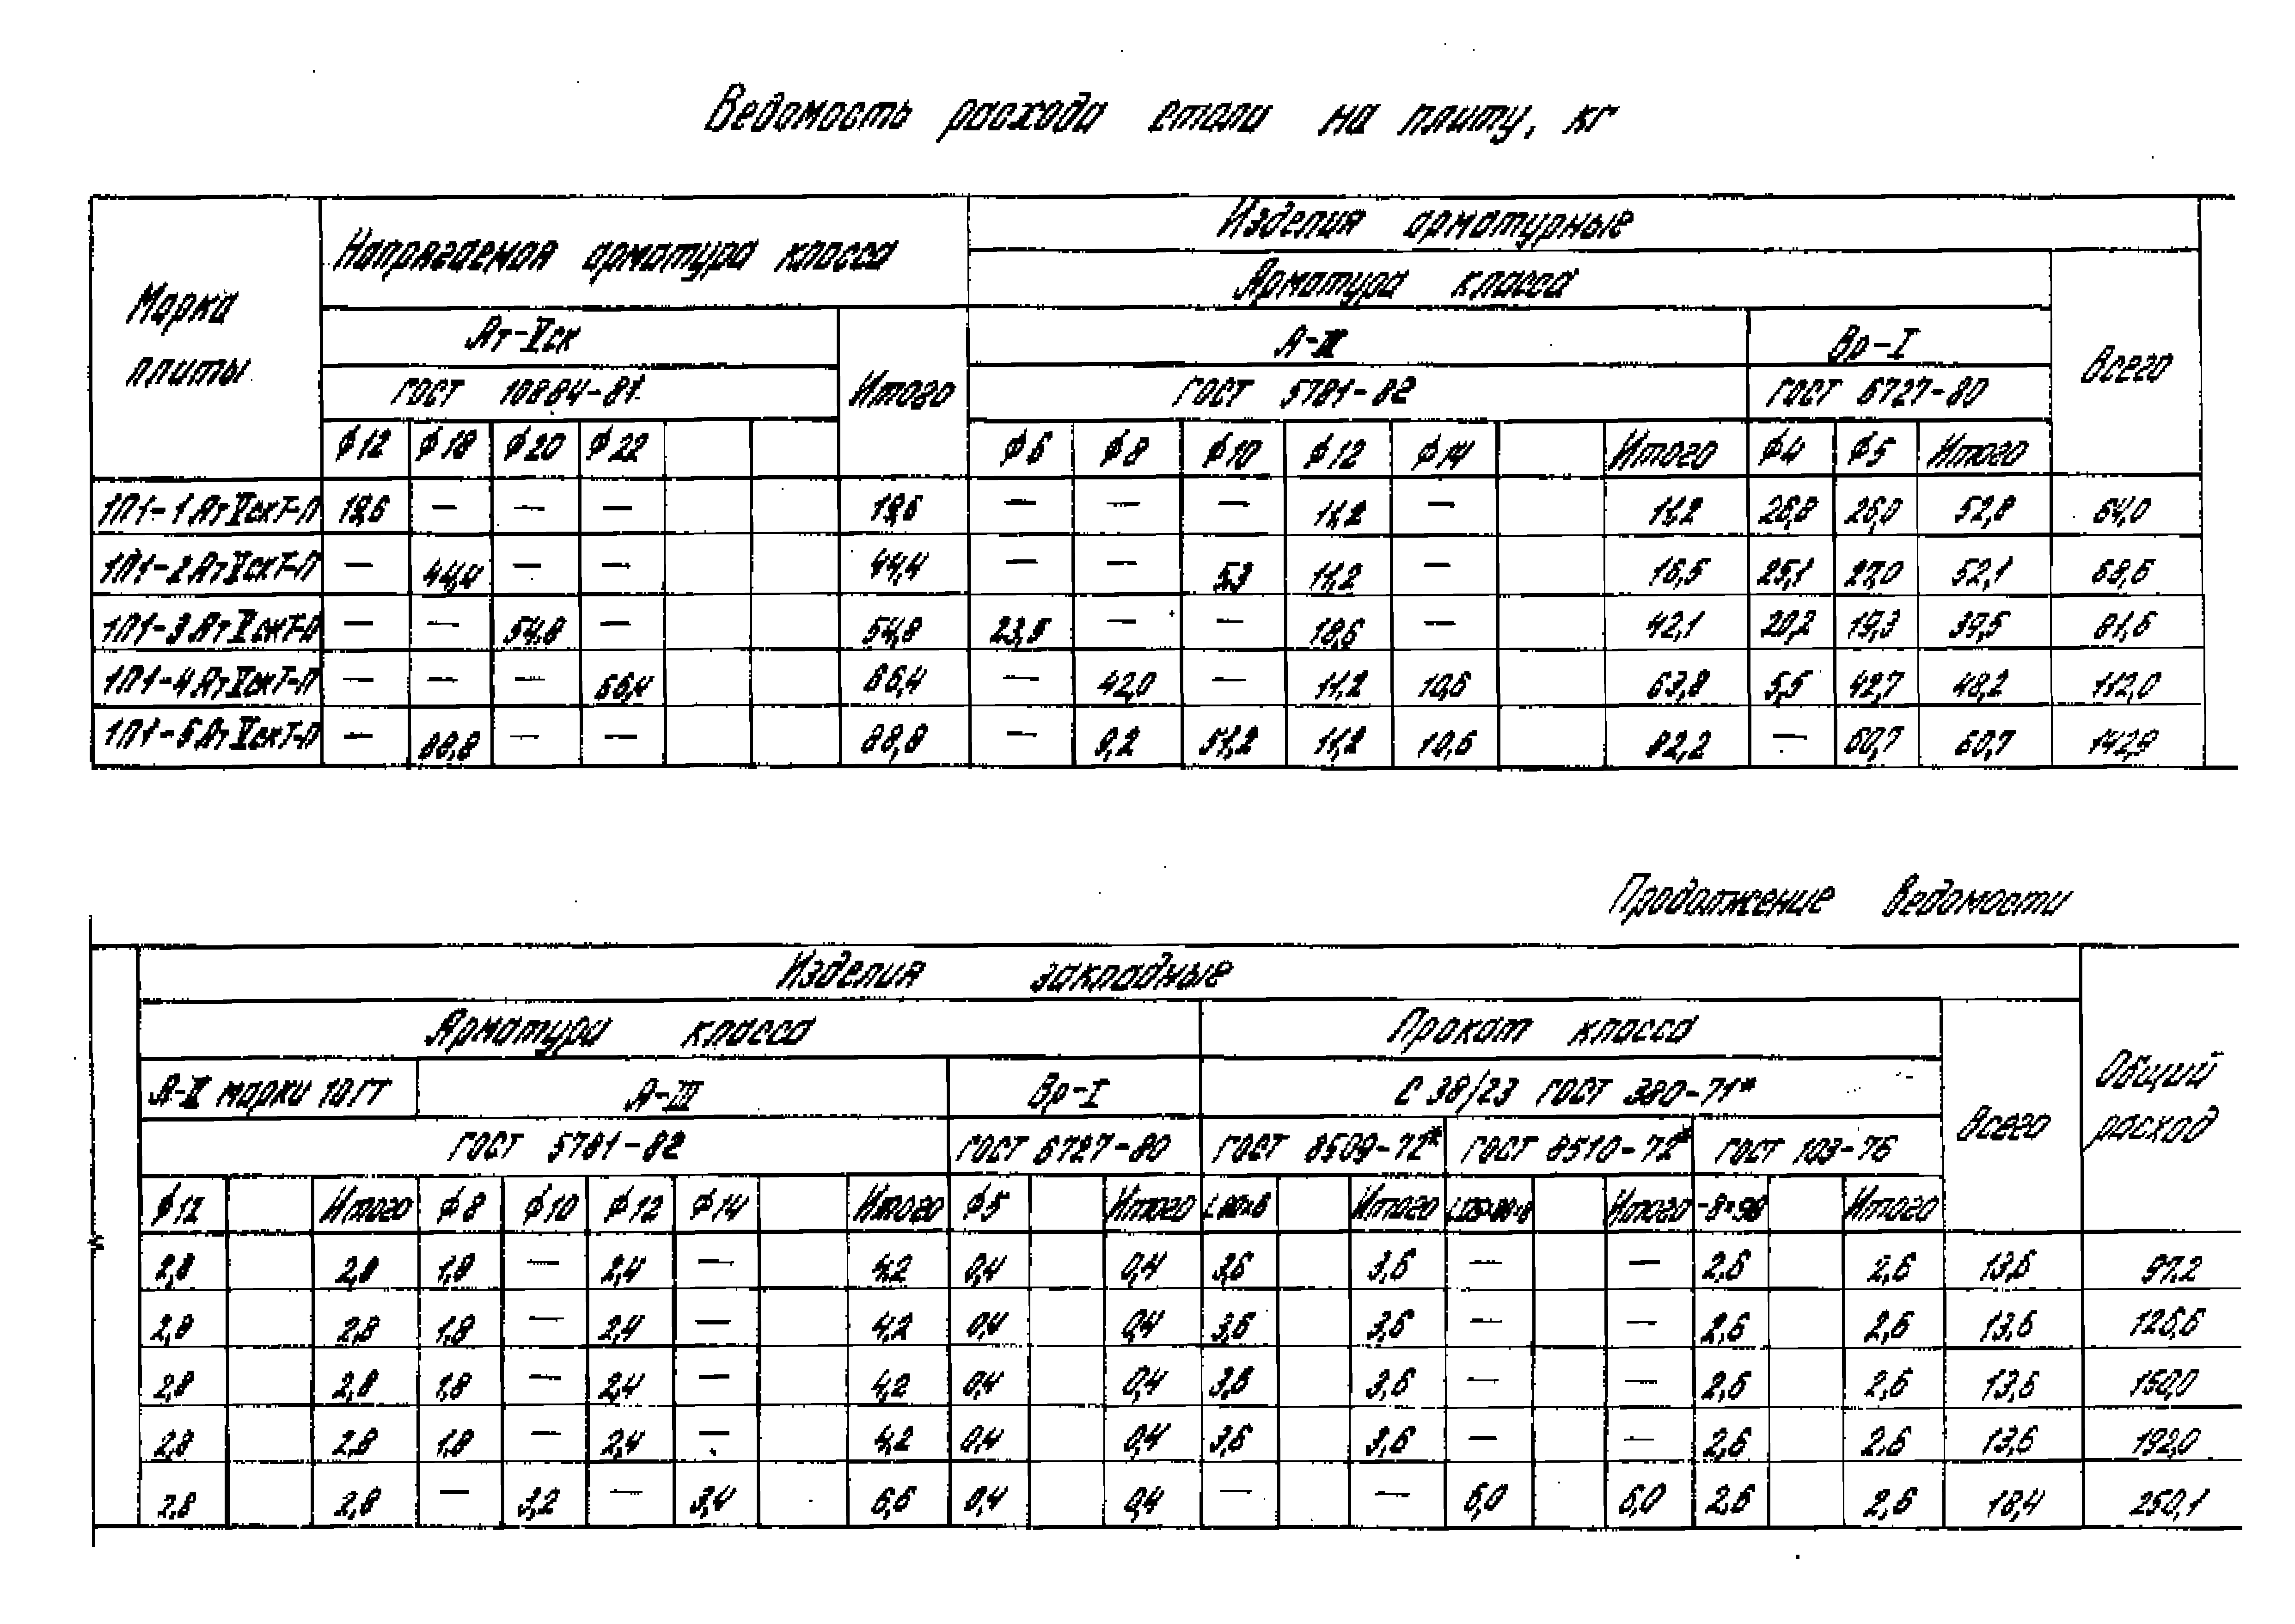 Ведомость расхода стали на плиту, кг
Марка плиты
Напрягаемая арматура класса
Изделия арматурные
Арматура класса
Ат-Vск
Итого
А-III
Вр-I
Всего
ГОСТ 10884-81
ГОСТ 5781-82
ГОСТ 6727-80
ϕ12 ϕ18 ϕ20 ϕ22 ϕ6 ϕ8 ϕ10 ϕ12 ϕ14 Итого ϕ4 ϕ5 Итого
1П1-1АтVскТ-П 19,6 — — — 19,6 — — — 11,2 — 11,2 26,8 26,0 52,8 64,0
1П1-2АтVскТ-П — 44,4 — — 44,4 — — 5,3 11,2 — 16,5 25,1 27,0 52,1 68,6
1П1-3АтVскТ-П — — 54,8 — 54,8 23,5 — — 18,6 — 42,1 20,2 19,3 39,5 81,6
1П1-4АтVскТ-П — — — 66,4 66,4 — 42,0 — 11,2 10,6 63,8 5,5 42,7 48,2 112,0
1П1-5АтVскТ-П — 88,8 — — 88,8 — 9,2 51,2 11,2 10,6 82,2 — 60,7 60,7 142,9
Продолжение ведомости
Изделия закладные
Общий расход
Арматура класса
Прокат класса
Всего
А-II марки 10ГТ
А-III
Вр-I
С 38/23 ГОСТ 380-71*
ГОСТ 5781-82
ГОСТ 6727-80
ГОСТ 8509-72*
ГОСТ 8510-72*
ГОСТ 103-76
ϕ12 Итого ϕ8 ϕ10 ϕ12 ϕ14 Итого ϕ5 Итого Итого Итого Итого
2,8 2,8 1,8 — 2,4 — 4,2 0,4 0,4 3,6 3,6 — — 2,6 2,6 13,6 97,2
2,8 2,8 1,8 — 2,4 — 4,2 0,4 0,4 3,6 3,6 — — 2,6 2,6 13,6 126,6
2,8 2,8 1,8 — 2,4 — 4,2 0,4 0,4 3,6 3,6 — — 2,6 2,6 13,6 150,0
2,8 2,8 1,8 — 2,4 — 4,2 0,4 0,4 3,6 3,6 — — 2,6 2,6 13,6 192,0
2,8 2,8 — 3,2 — 3,4 6,6 0,4 0,4 — — 6,0 6,0 2,6 2,6 18,4 250,1